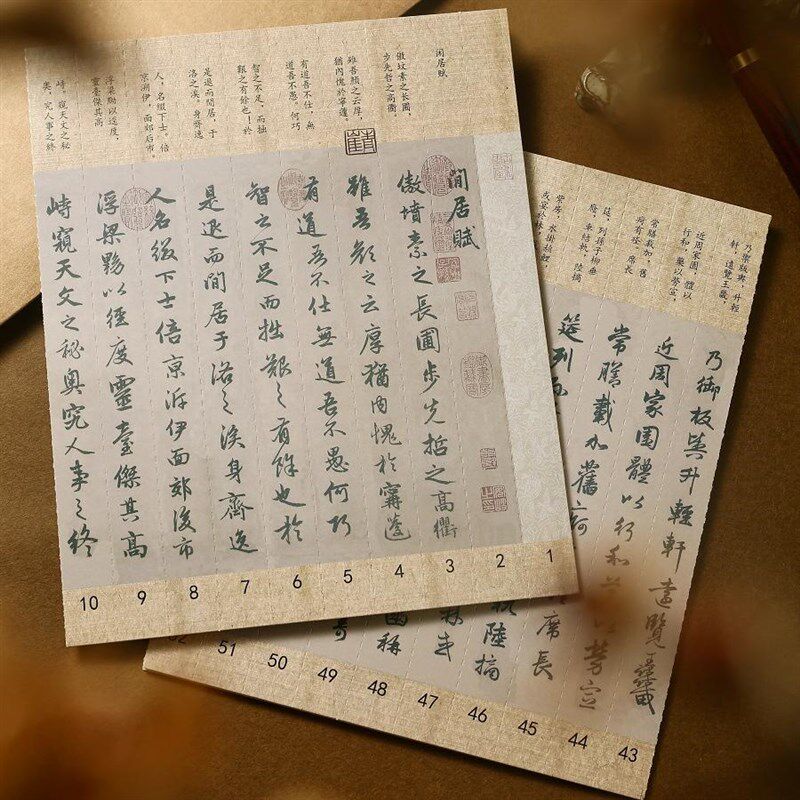 闲居賦
傲墳素之长圃，
步先哲之高衢
雖吾顏之云厚，
猶內愧於寧蘧
有道吾不仕，無
道吾不愚。何巧
智之不足，而拙
艱之有餘也！於
是退而閒居，于
洛之涘。身齊逸
人，名缀下士。倍
京溯伊，面郊后市。
浮梁黝以逕度，
靈臺傑其高
峙。窺天文之秘
奧，究人事之終
閒居賦
傲墳素之長圃步先哲之高衢
雖吾顏之云厚猶內愧於寧蘧
有道吾不仕無道吾不愚何巧
智之不足而拙艱之有餘也於
是退而閒居于洛之涘身齊逸
人名綴下士倍京泝伊面郊後市
浮梁黝以徑度靈臺傑其高
峙窺天文之秘奧究人事之終
10 9 8 7 6 5 4 3 2 1
乃御版輿，升輕
軒，遠覽王畿，
近周家園。體以
行和，藥以勞宣，
常膳載加，舊
痾有痊。席長
筵，列孫子。柳垂
廕，車結軌。陸摘
紫房，水掛赪鯉，
乃御板輿升輕軒遠覽王畿
近周家園體以行和藥以勞宣
常膳載加舊痾
席長
筵列孫
軌陸摘
52 51 50 49 48 47 46 45 44 43